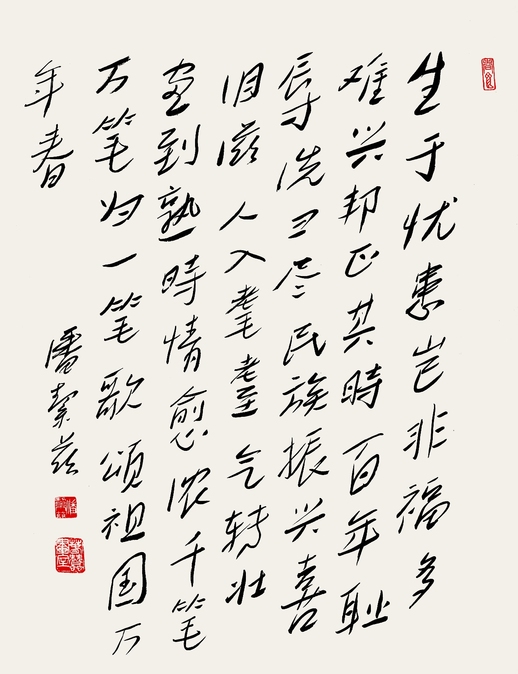 生于忧患岂非福多
难兴邦正其時百年耻
辱洗已尽民族振兴喜
泪滋人入耄耋气转壮
画到熟時情愈浓千笔
万笔归一笔歌颂祖国万
年春
潘絜兹